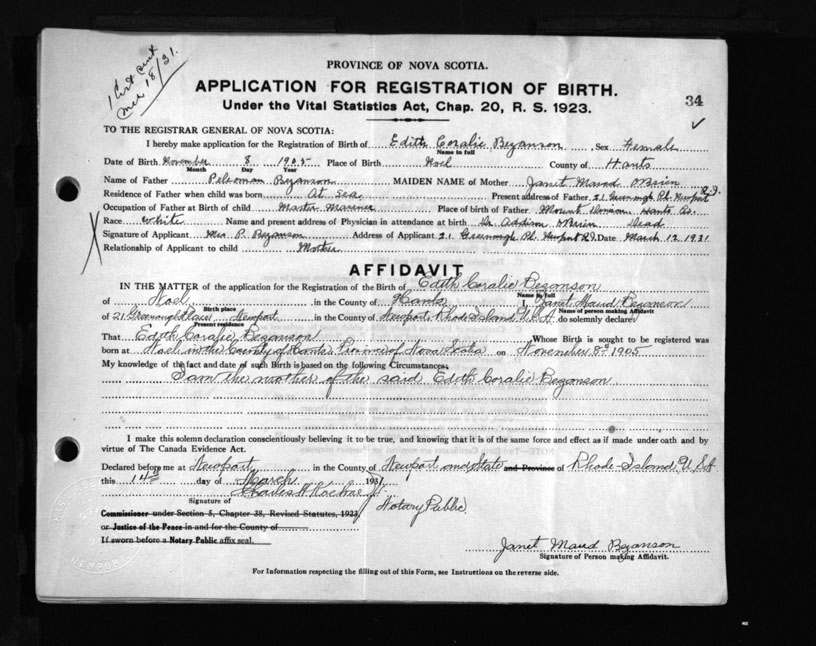 1 Cert sent
Mch 18/31.
PROVINCE OF NOVA SCOTIA.
APPLICATION FOR REGISTRATION OF BIRTH.
Under the Vital Statistics Act, Chap. 20, R. S. 1923.
34
TO THE REGISTRAR GENERAL OF NOVA SCOTIA:
I hereby make application for the Registration of Birth of Edith Coralie Bezanson, Sex Female
Name in full
Date of Birth November 8 1905 Place of Birth Noel County of Hants
Month Day Year
Name of Father Bezanson MAIDEN NAME of Mother Janet Maud O'Brien
Residence of Father when child was born At Sea Present address of Father 21 Greenough Pl. Newport R.I.
Occupation of Father at Birth of child Master Mariner Place of Birth of Father Mount Denison Hants Co.
Race White Name and present address of Physician in attendance at birth Dr Addison O'Brien Dead
Signature of Applicant Mrs. P. Bezanson Address of Applicant 21 Greenough Pl. Newport R.I. Date March 12 1931
Relationship of Applicant to child Mother
AFFIDAVIT
IN THE MATTER of the application for the Registration of the Birth of Edith Coralie Bezanson
Name in full
of Noel in the County of Hants I, Janet Maud Bezanson
Birth place Name of person making Affidavit
of 21 Greenough Place Newport in the County of Newport, Rhode Island U.S.A do solemnly declare
Present residence
That Edith Coralie Bezanson Whose Birth is sought to be registered was
born at Noel in the County of Hants Province of Nova Scotia on November 8th 1905
My knowledge of the fact and date of such Birth is based on the following Circumstances:
I am the mother of the said Edith Coralie Bezanson
I make this solemn declaration conscientiously believing it to be true, and knowing that it is of the same force and effect as if made under oath and by
virtue of The Canada Evidence Act.
Declared before me at Newport in the County of Newport and State and Province of Rhode Island, U.S.A
this 14th day of March 1931
Signature of Charles H. Notary Public
Commissioner under Section 5, Chapter 38, Revised Statutes, 1923
or Justice of the Peace in and for the County of
If sworn before a Notary Public affix seal.
Janet Maud Bezanson
Signature of Person making Affidavit.
For Information respecting the filling out of this Form, see Instructions on the reverse side.